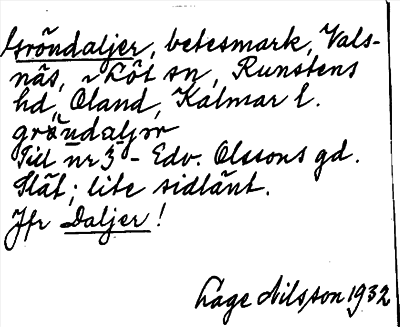 Gröndaljer, betesmark, Vals-
näs, Löt sn, Runstens
hd, Öland, Kalmar l.
gröndaljər
Till nr 3 - Edv. Olssons gd.
Slät; lite sidlänt.
Jfr Daljer!
Lage Nilsson 1932